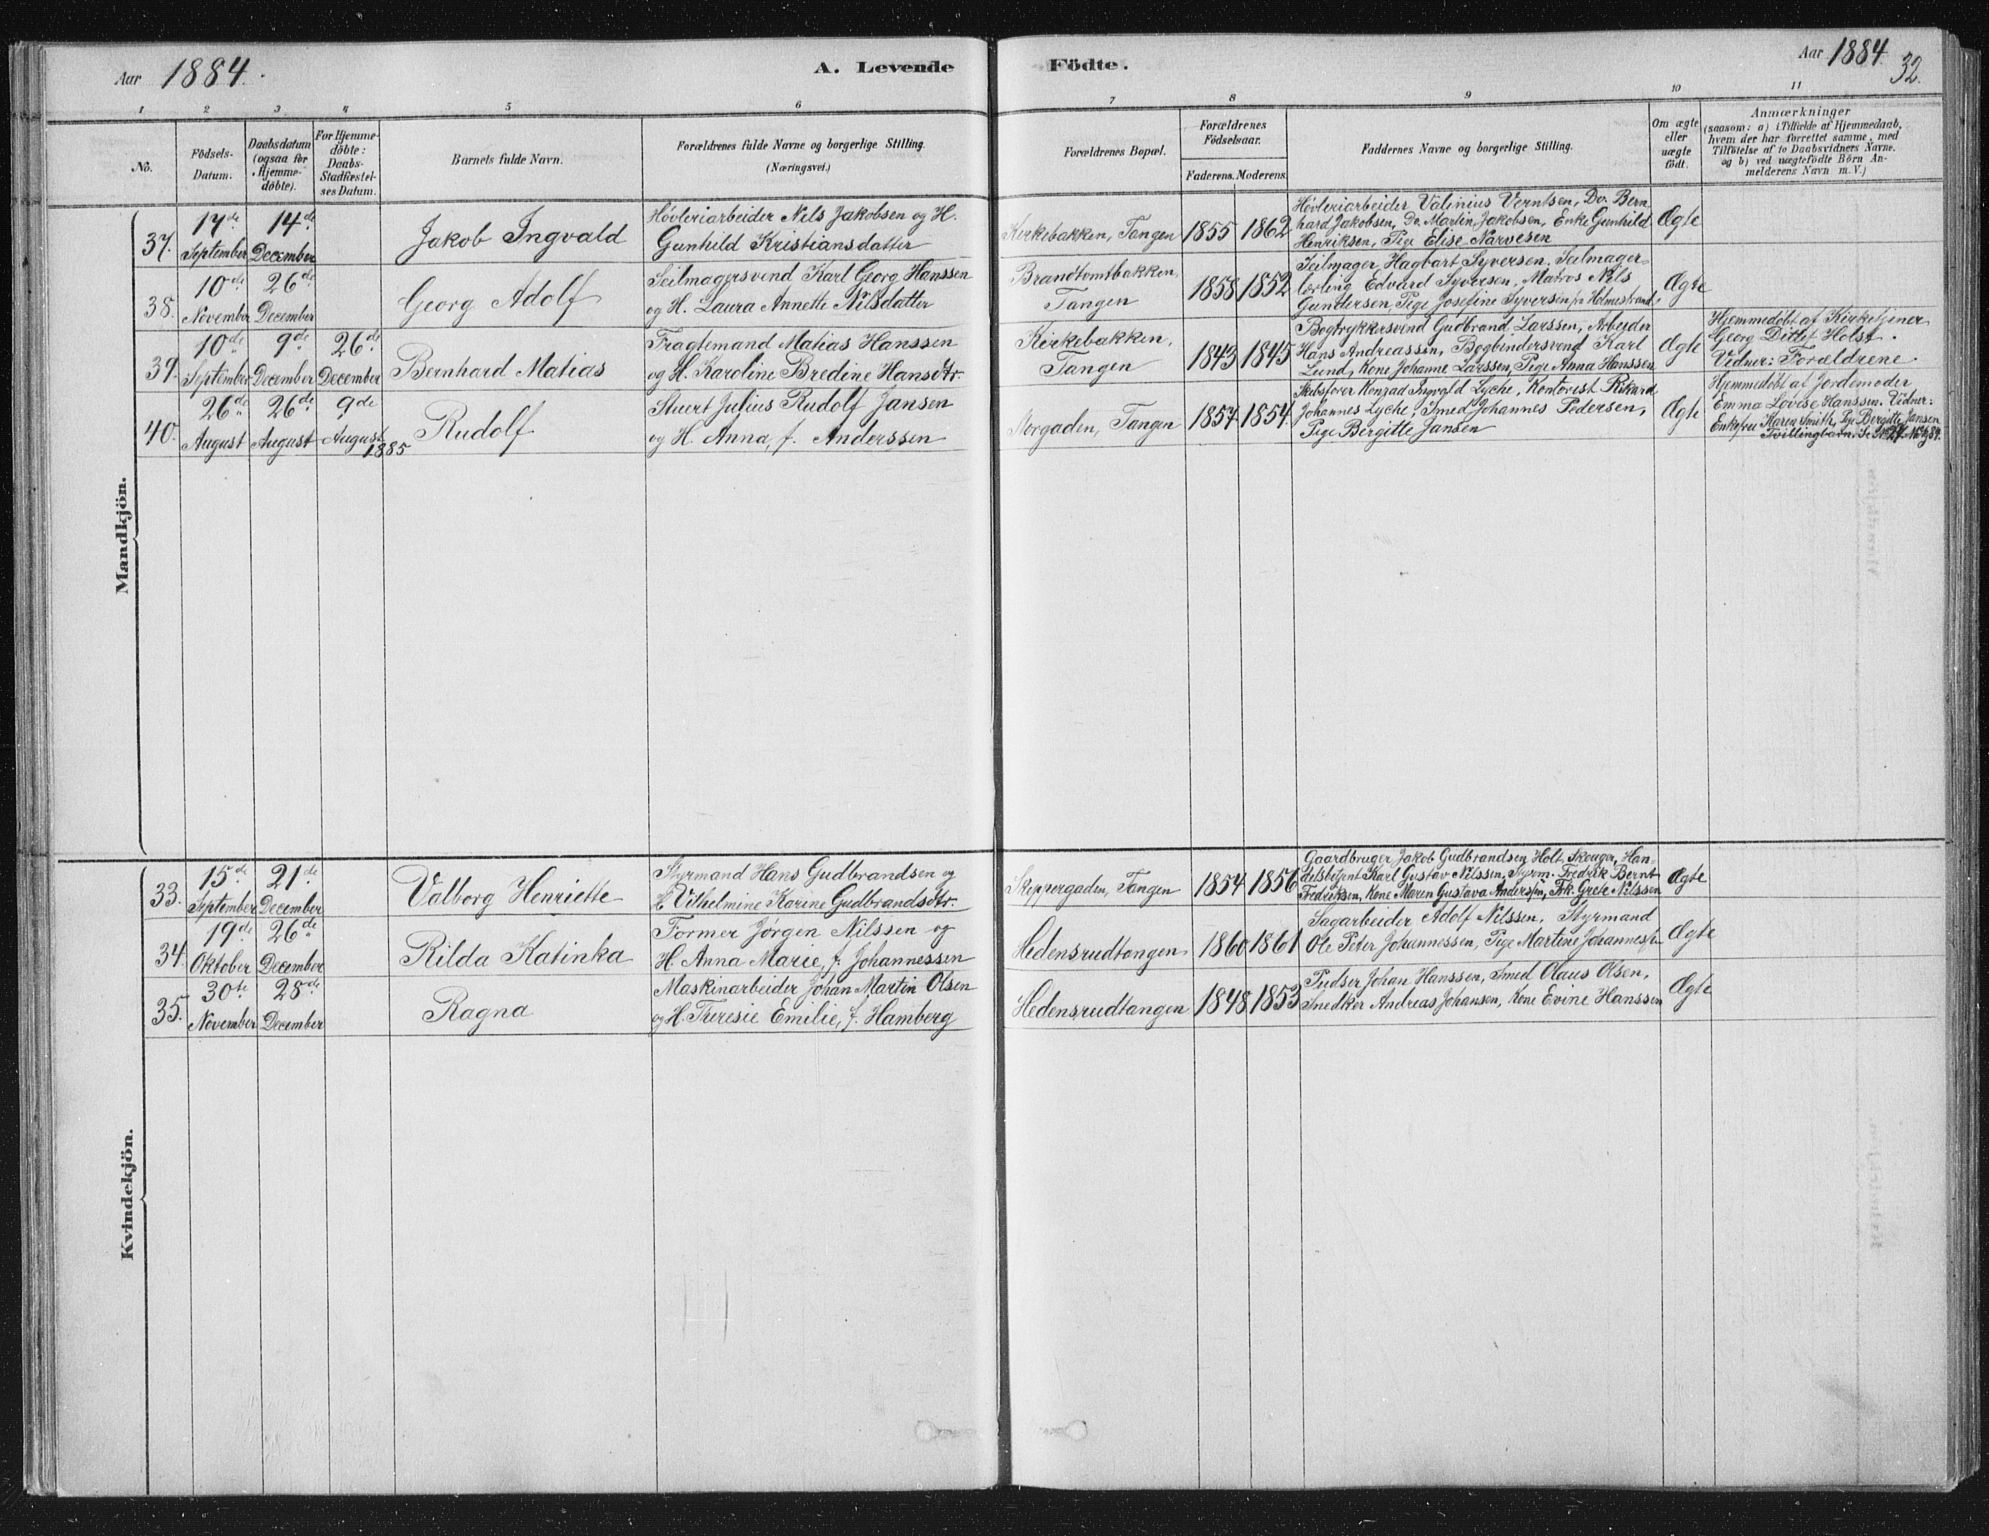 Aar 1884.
A. Levende Födte.
Aar 1884
32.
1 2 3 4 5 6 7 8 9 10 11
No.
Födsels-
Datum.
Daabsdatum
(ogsaa for
Hjemme-
döbte).
For Hjemme-
döbte:
Daabs-
Stadfæstel-
ses Datum.
Barnets fulde Navn.
Forældrenes fulde Navne og borgerlige Stilling.
(Næringsvei.)
Forældrenes Bopæl.
Forældrenes
Födselsaar.
Faderens. Moderens.
Faddernes Navne og borgerlige Stilling.
Om ægte
eller
uægte
födt.
Anmærkninger
(saasom: a) i Tilfælde af Hjemmedaab,
hvem der har forrettet samme, med
Tilföielse af to Daabsvidners Navne.
og b) ved uægtefödte Börn An-
melderens Navn m. V.)
Mandkjön.
37.
17de
September
14de
December
Jakob Ingvald
Høvleriarbeider Nils Jakobsen og H.
Gunhild Kristiansdatter
Kirkebakken, Tangen
1855 1862
Høvleriarbeider Valinius Verntsen, Do. Bern
hard Jakobsen, Do Martin Jakobsen, Enke Gunhild
Henriksen, Pige Elise Narvesen
Ægte
38.
10de
November
26de
December
Georg Adolf
Seilmagersvend Karl Georg Hanssen
og H. Laura Annette Nilsdatter
Brandtomtbakken,
Tangen
1858 1852
Seilmager Hagbart Syversen. Seilmager-
lærling Edvard Syversen, Matros Nils
Gundersen, Pige Josefine Syversen fra Holmestrand.
Ægte
39.
10de
September
9de
December
26de
December
Bernhard Matias
Fragtemand Matias Hanssen
og H. Karoline Bredine Hansdtr.
Kirkebakken,
Tangen
1843 1845
Bogtrykkersvend Gudbrand Larssen, Arbeider
Hans Andreassen, Bogbindersvend Karl
Lund, Kone Johanne Larssen, Pige Anna Hanssen
Ægte
Hjemmedöbt af Kirketjener
Georg Ditlef Holst.
Vidner: Forældrene
40.
26de
August
26de
August
9de
August
1885
Rudolf
Stuert Julius Rudolf Jansen
og H. Anna, f. Anderssen
Storgaden, Tangen
1857 1854
Skibsfører Konrad Ingvald Lyche, Kontorist Rikard
Johannes Lyche, Smed Johannes Pedersen,
Pige Bergitte Jansen
Ægte
Hjemmedöbt af Jordemoder
Emma Lovise Hanssen. Vidner:
Enkefru Karen Smith, Pige Bergitte Jansen
Tvillingbarn.
Kvindekjön.
33.
15de
September
21de
December
Valborg Henriette
Styrmand Hans Gudbrandsen og
H. Vilhelmine Karine Gudbrandsdtr.
Skippergaden, Tangen
1854 1856
Gaardbruger Jakob Gudbrandsen Holt, Skouger, Han-
delsbetjent Karl Gustav Nilssen, Styrm. Fredrik Bernt
Fredriksen, Kone Maren Gustava Anderssen, Frk. Grete Nilssen
Ægte
34.
19de
Oktober
26de
December
Rilda Katinka
Former Jørgen Nilssen og
H. Anna Marie, f. Johannessen
Hedensrudtangen
1860 1861
Sagarbeider Adolf Nilssen, Styrmand
Ole Peter Johannessen, Pige Martine Johannessen
Ægte
35.
30te
November
28de
December
Ragna
Maskinarbeider Johan Martin Olsen
og H. Theresie Emilie, f. Hamberg
Hedensrudtangen
1848 1853
Pudser Johan Hanssen, Smed Olaus Olsen,
Snedker Andreas Johansen, Kone Evine Hanssen
Ægte